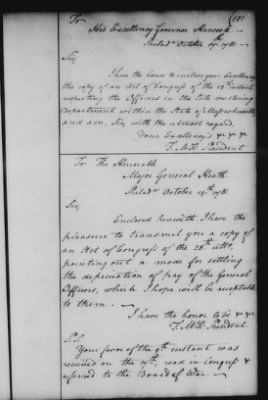 To
His Excellency Governor Hancock
Philadᵃ October 19ᵗʰ 1781
Sir,
I have the honor to enclose your Excellency
the copy of an Act of Congress of the 12ᵗʰ instant
respecting the Officers in the late
department within the State of Massachusetts
and am, Sir, with the utmost regard,
Your Excellency's &c &c &c
T. McK. President
To The Honorable
Major General Heath
Philadᵃ October 19ᵗʰ 1781
Sir,
Enclosed herewith I have the
pleasure to transmit you a copy of
an Act of Congress of the 28ᵗʰ ultᵒ,
pointing out a mode for settling
the depreciation of pay of the General
Officers, which I hope will be acceptable
to them. —
I have the honor to be &c &c
T. McK. President
P.S.
Your favor of the 9ᵗʰ instant was
received on the, read in Congress &
referred to the Board of War —